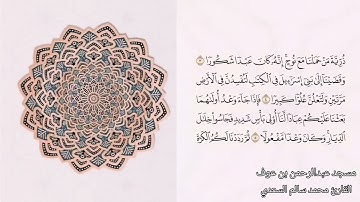 ذُرِّيَّةَ مَنْ حَمَلْنَا مَعَ نُوحٍ إِنَّهُ كَانَ عَبْدًا شَكُورًا ﴿٣﴾
وَقَضَيْنَا إِلَىٰ بَنِي إِسْرَائِيلَ فِي الْكِتَابِ لَتُفْسِدُنَّ فِي الْأَرْضِ
مَرَّتَيْنِ وَلَتَعْلُنَّ عُلُوًّا كَبِيرًا ﴿٤﴾ فَإِذَا جَاءَ وَعْدُ أُولَاهُمَا
بَعَثْنَا عَلَيْكُمْ عِبَادًا لَنَا أُولِي بَأْسٍ شَدِيدٍ فَجَاسُوا خِلَالَ
الدِّيَارِ وَكَانَ وَعْدًا مَفْعُولًا ﴿٥﴾ ثُمَّ رَدَدْنَا لَكُمُ الْكَرَّةَ
مسجد عبدالرحمن بن عوف
القارئ محمد سالم السعدي